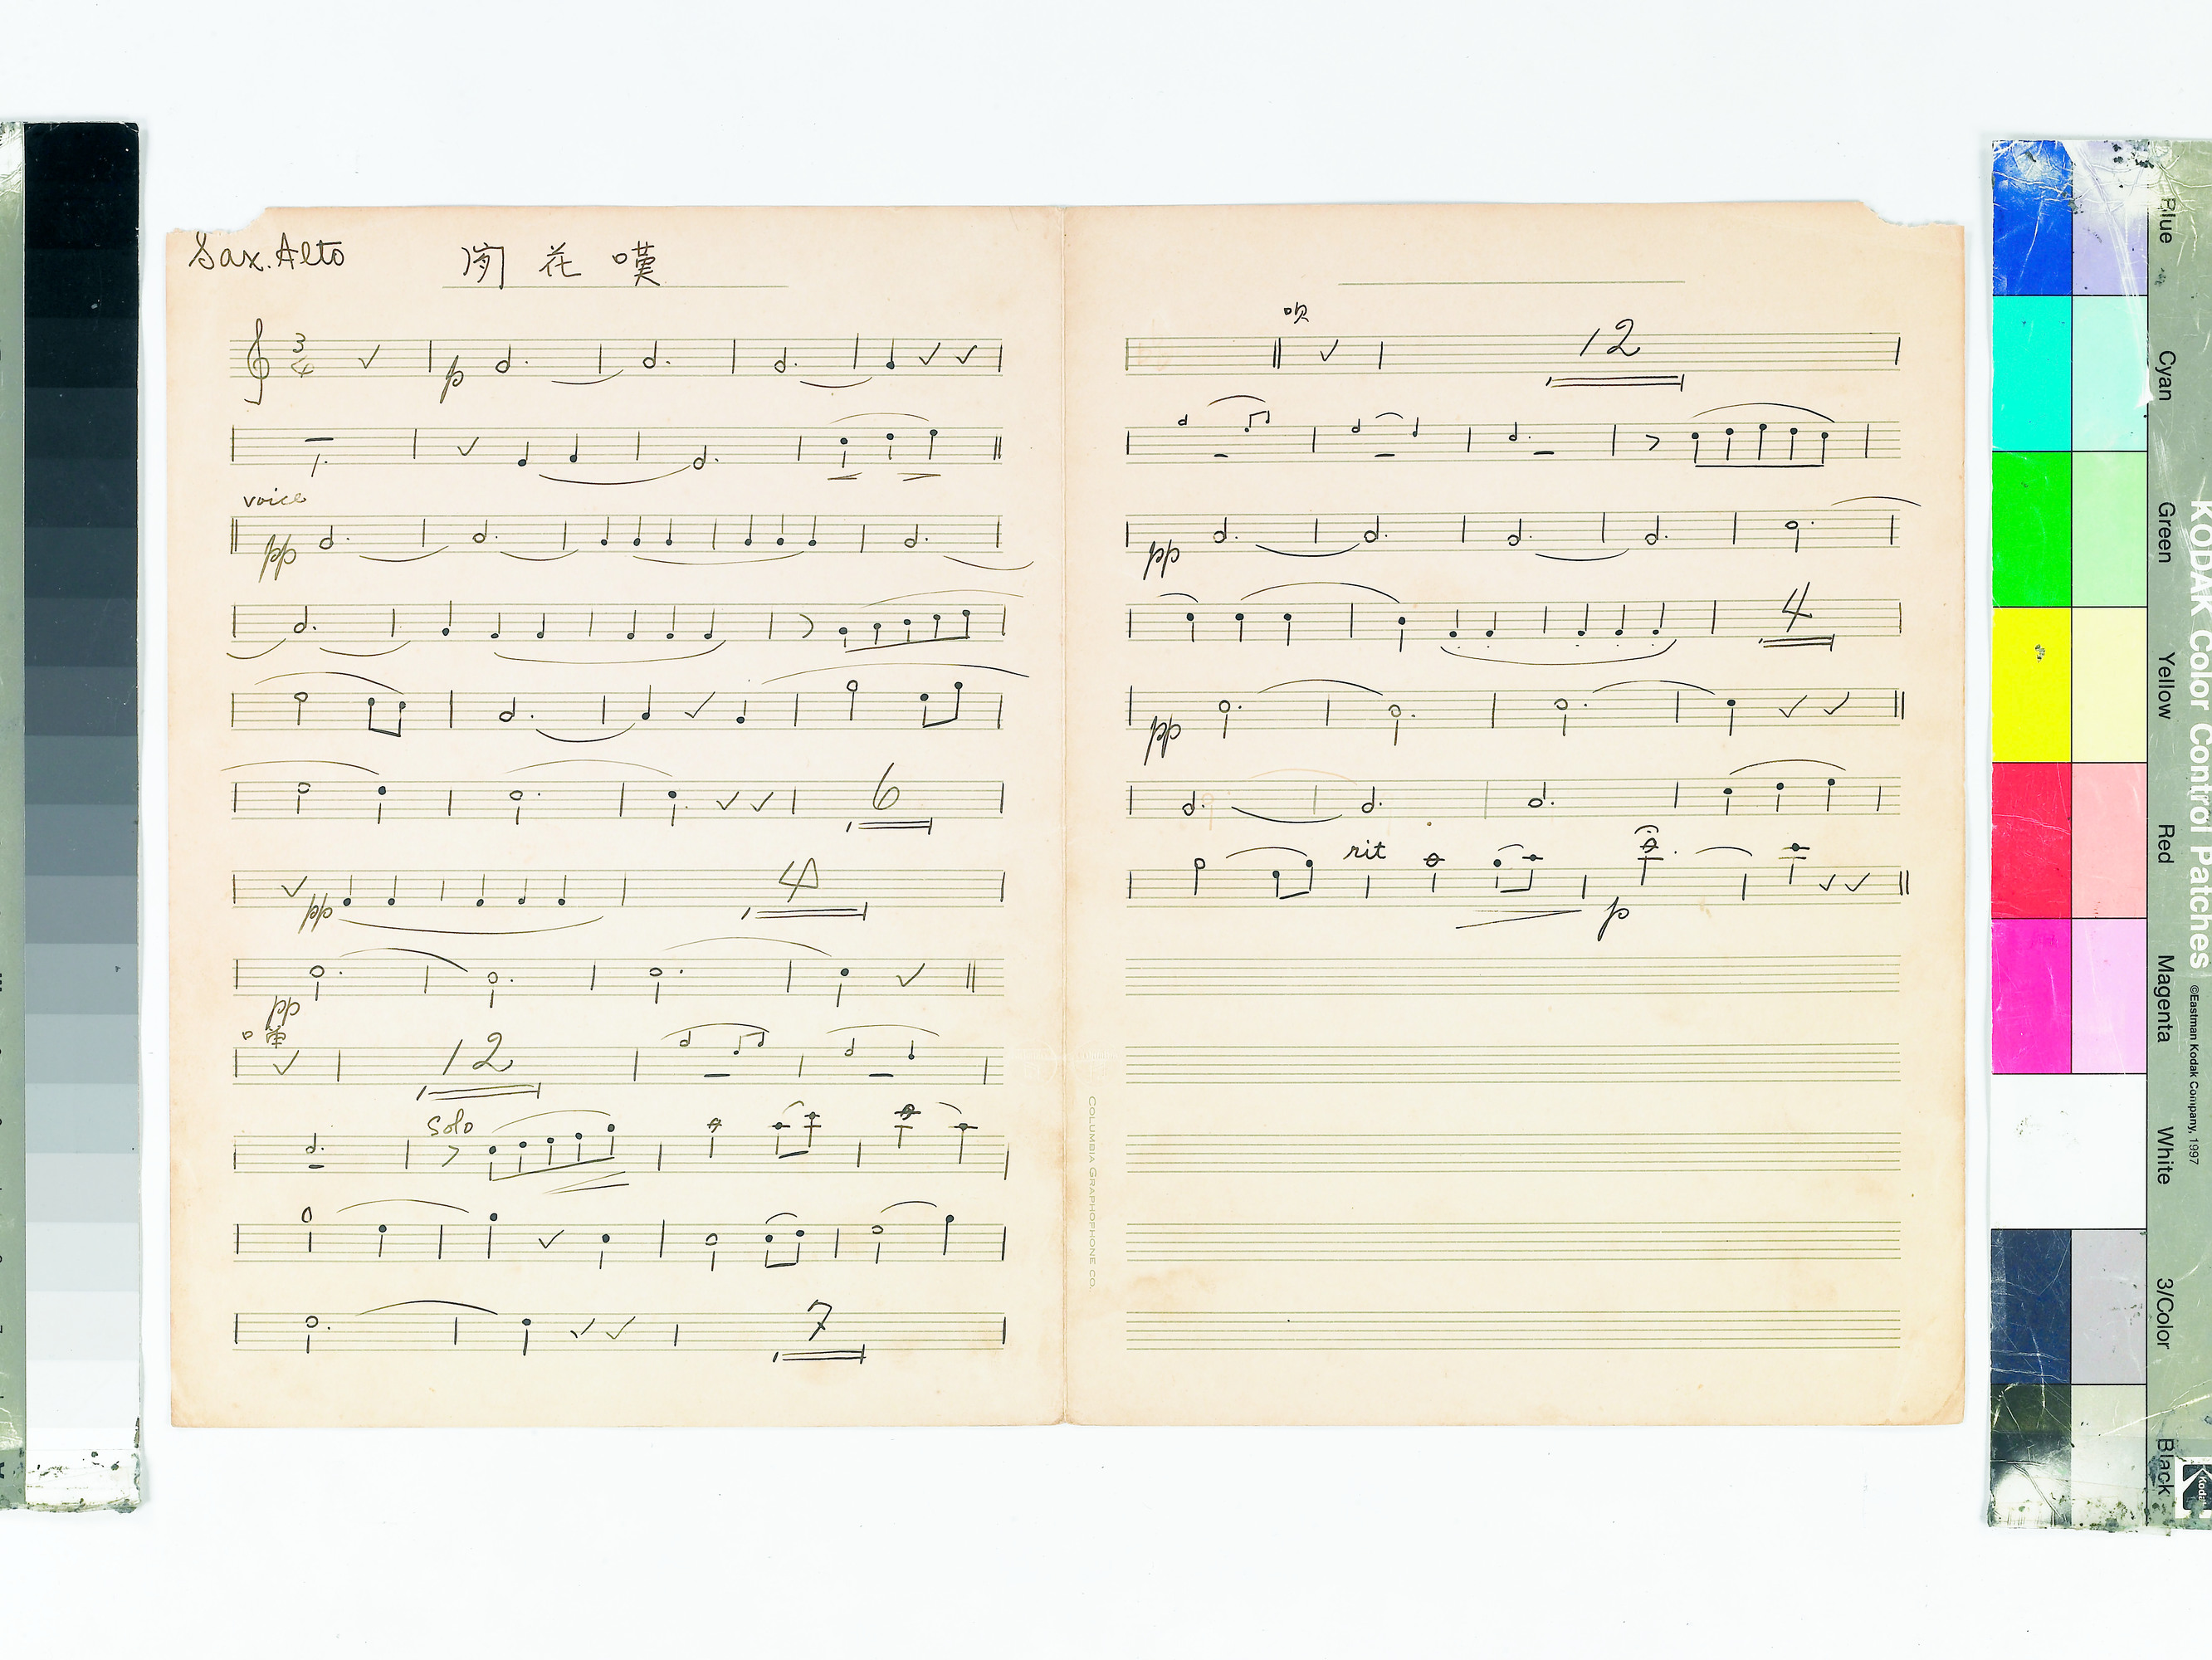 Sax. Alto
花嘆
3
4
p
voice
pp
6
pp
4
pp
12
Solo
7
唄
12
pp
4
pp
rit
p
COLUMBIA GRAPHOPHONE CO.
Blue
Cyan
Green
Yellow
Red
Magenta
White
3/Color
Black
KODAK Color Control Patches
©Eastman Kodak Company, 1997
Kodak